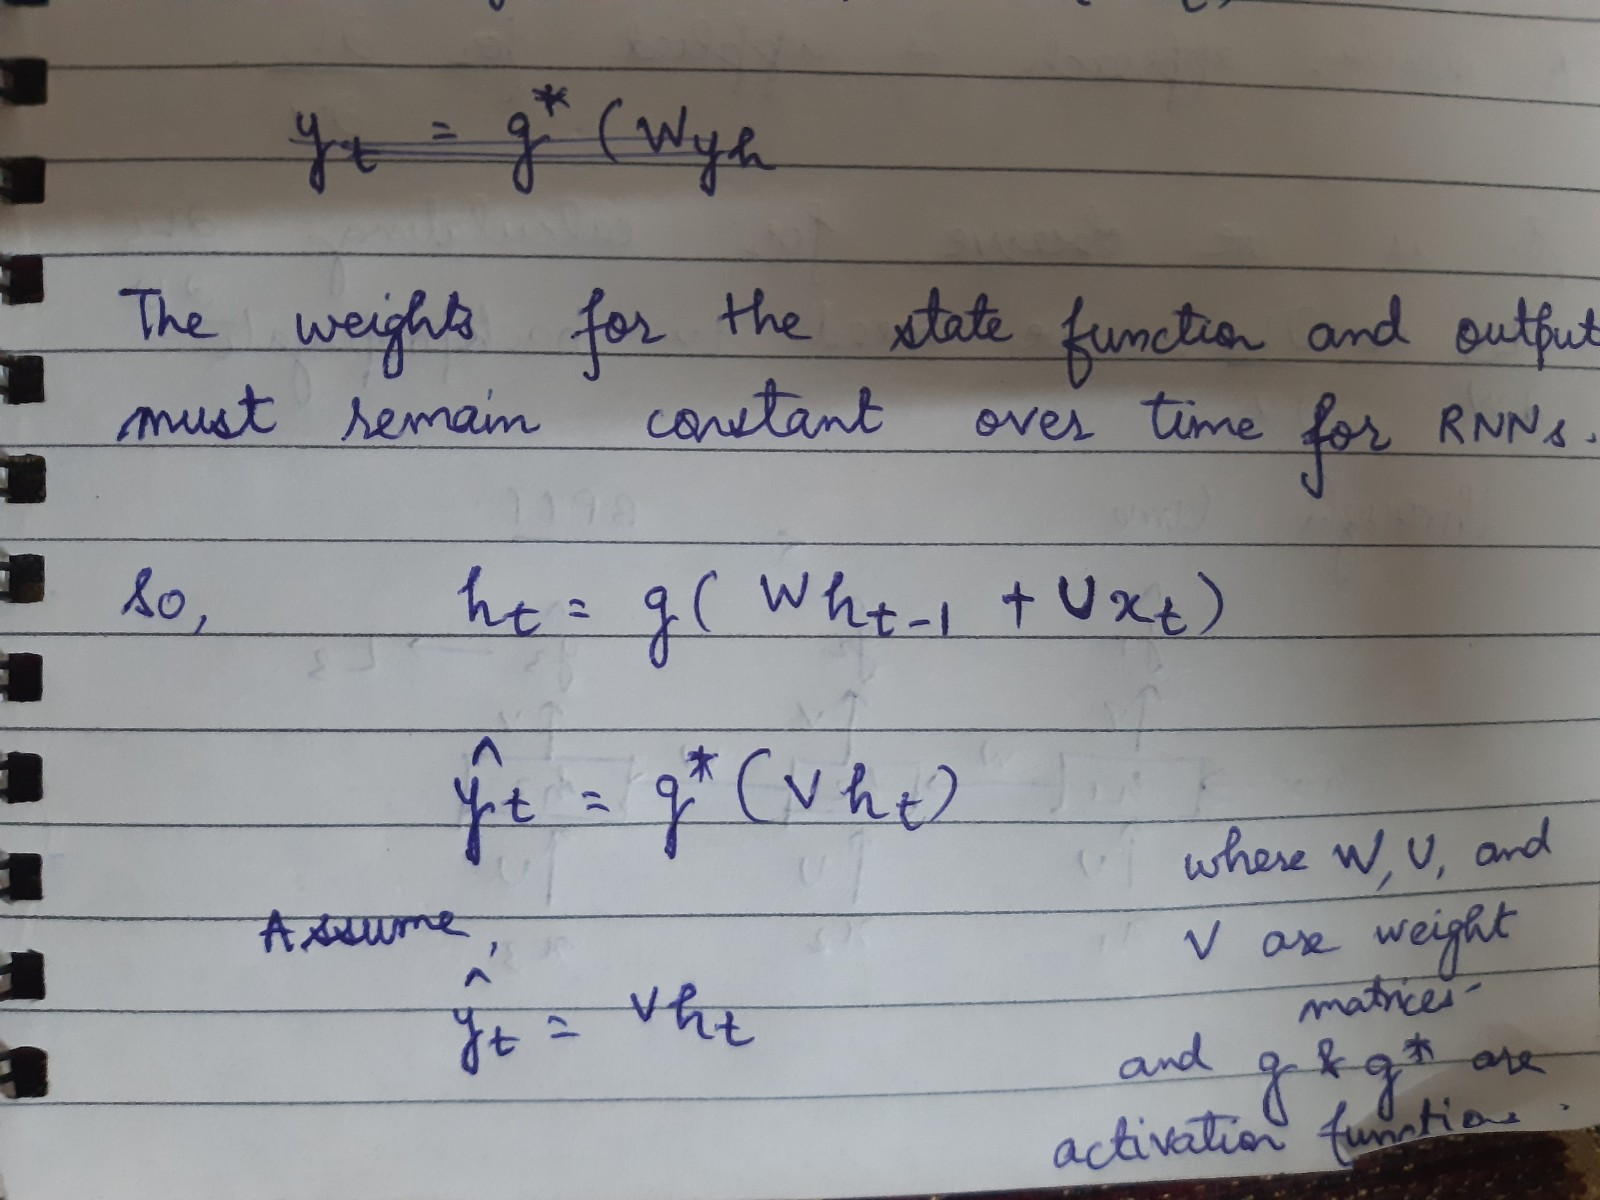 y_t = g* (W_yh
The weights for the state function and output
must remain constant over time for RNNs.
So, h_t = g( W h_t-1 + U x_t )
ŷ_t = g* (V h_t)
where W, U, and
Assume,
V are weight
matrices
ŷ_t = V h_t
and g & g* are
activation functions.